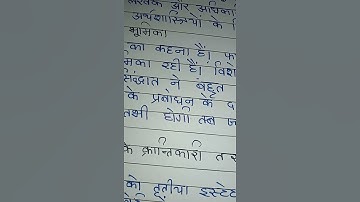 और
अर्थशास्त्रियों के
भूमिका
का कहना है।
मिका रही है। विशे
सिद्धांत ने बहुत
के प्रबोधन के द
तभी होगी तब
के क्रान्तिकारी त
को तृतीया इस्टे